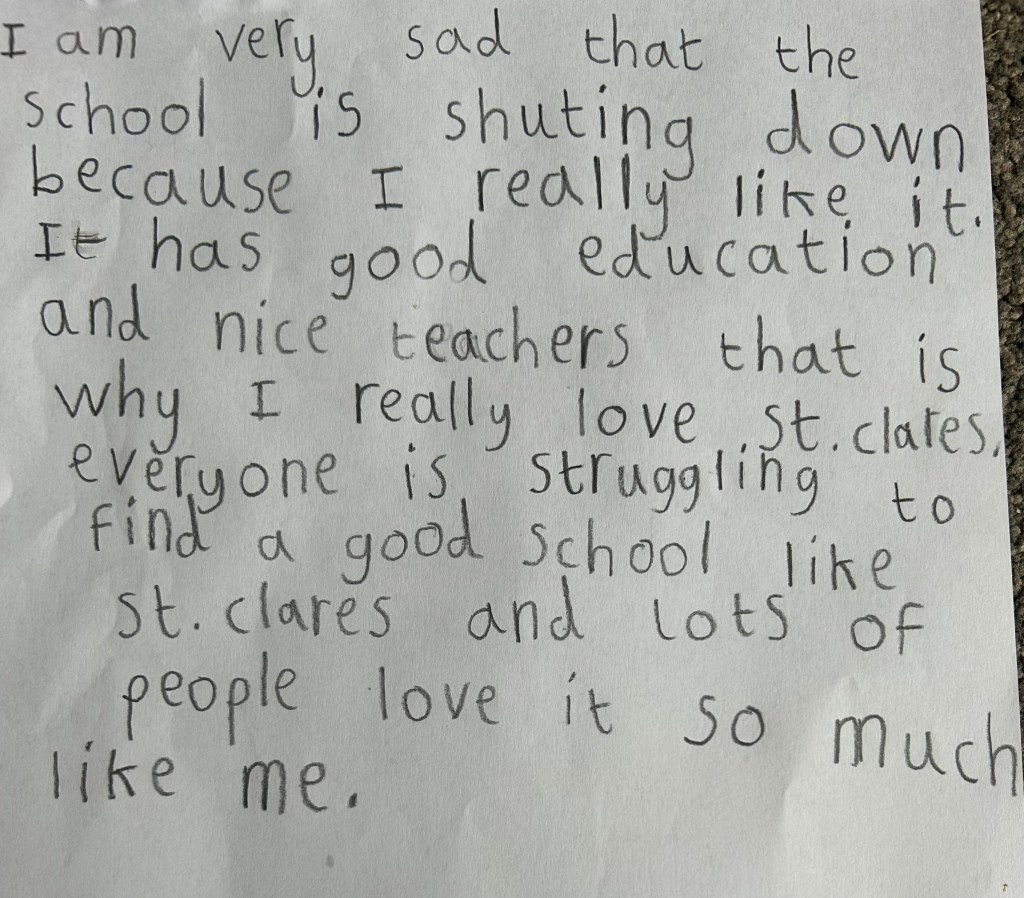 I am very sad that the
school is shuting down
because I really like it.
It has good education
and nice teachers that is
why I really love st.clares.
everyone is struggling to
find a good school like
st.clares and lots of
people love it so much
like me.